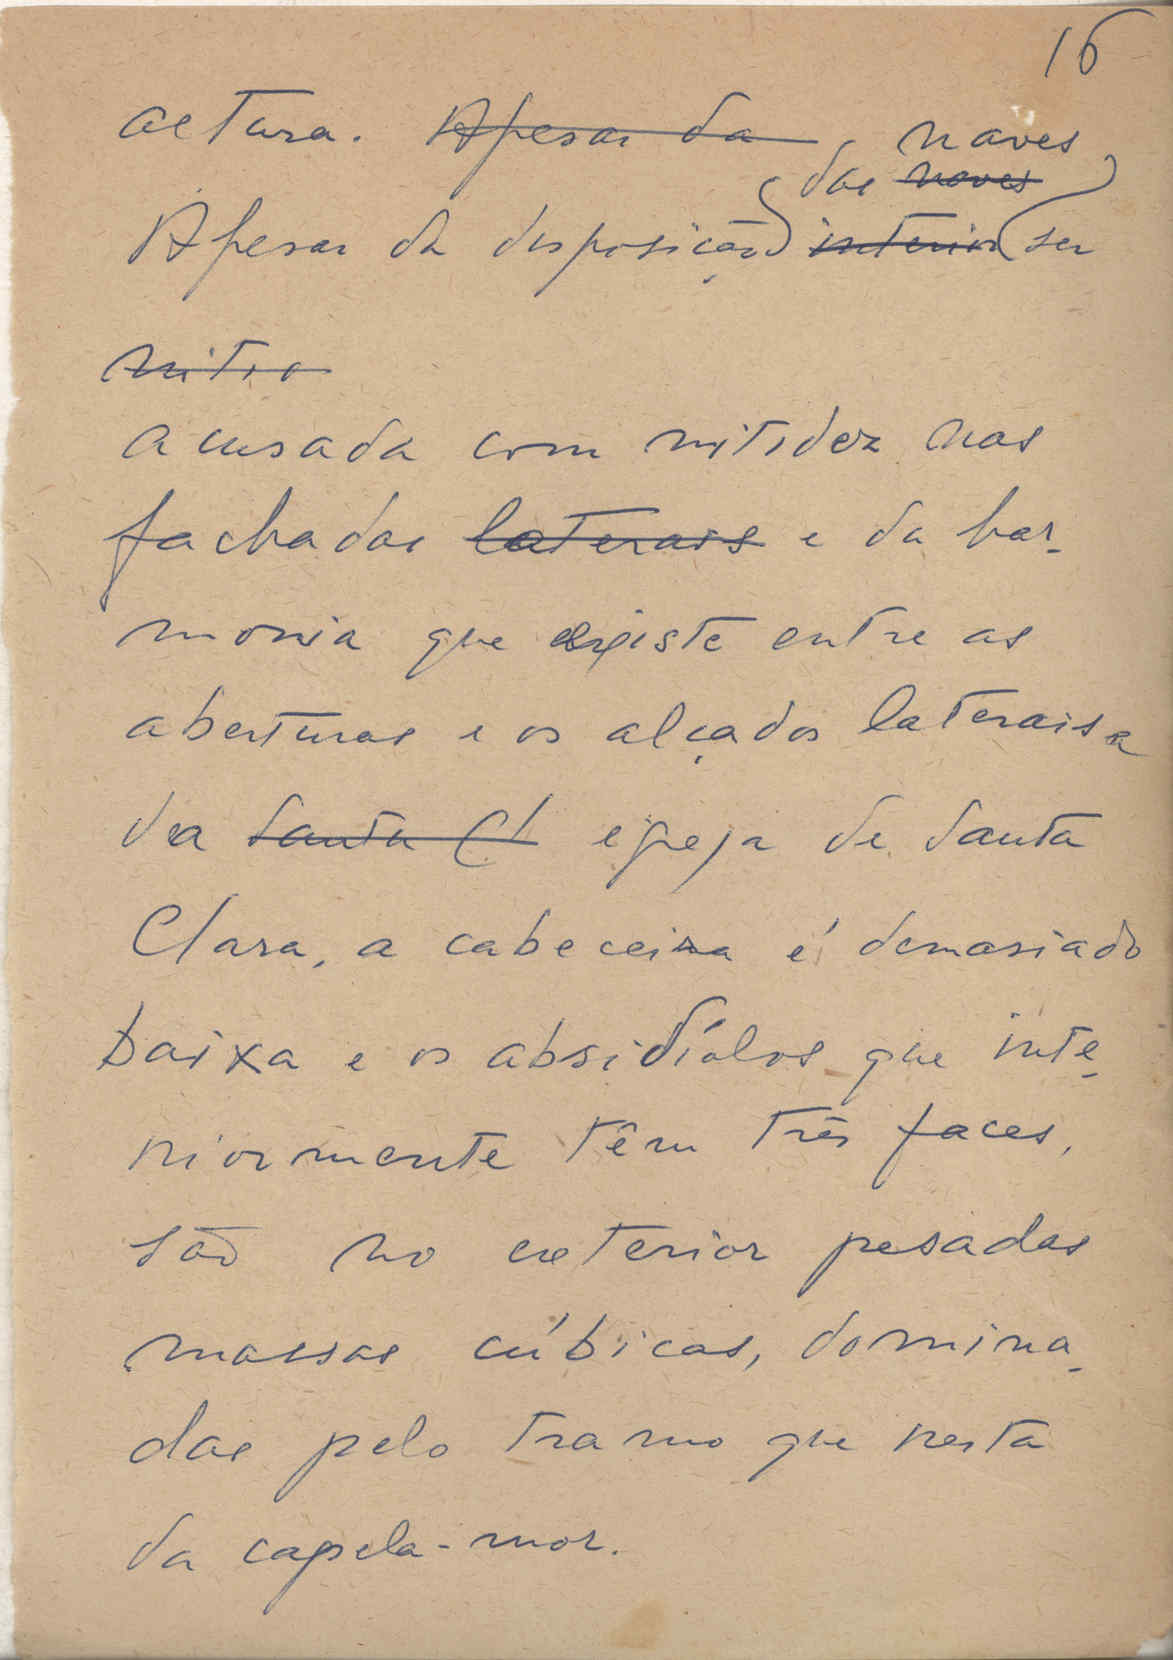 16
altura. Apesar da naves
das naves
Apesar da disposição interior ser
nitio
acusada com nitidez nas
fachadas laterais e da har-
monia que existe entre as
aberturas e os alçados laterais
da Santa Cl igreja de Santa
Clara, a cabeceira é demasiado
baixa e os absidíolos que inte-
riormente têm três faces,
são no exterior pesadas
massas cúbicas, domina-
das pelo tramo que resta
da capela-mor.